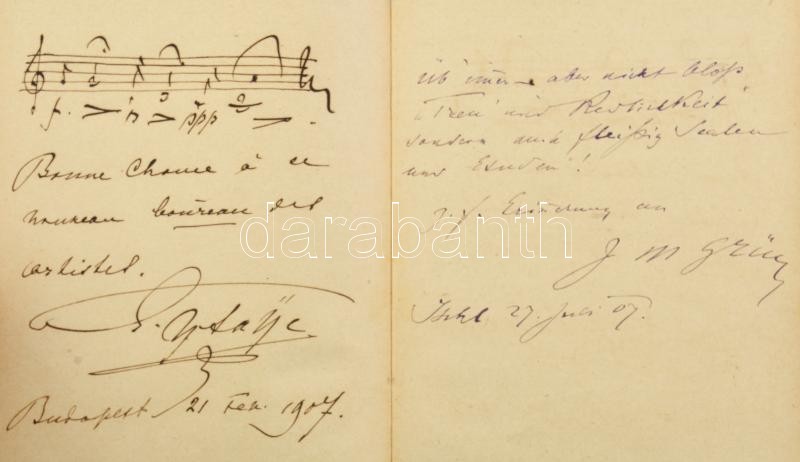 f. > p > ppp >
Bonne Chance à ce
nouveau bourreau des
artistes.
E. Ysaÿe
Budapest 21 Fev. 1907.
Üb' immer aber nicht bloß
"Treu und Redlichkeit"
sondern auch fleißig Scalen
und Etuden!
z. f. Erinnerung an
J M Grün
Ischl 27. Juli 07.
darabanth